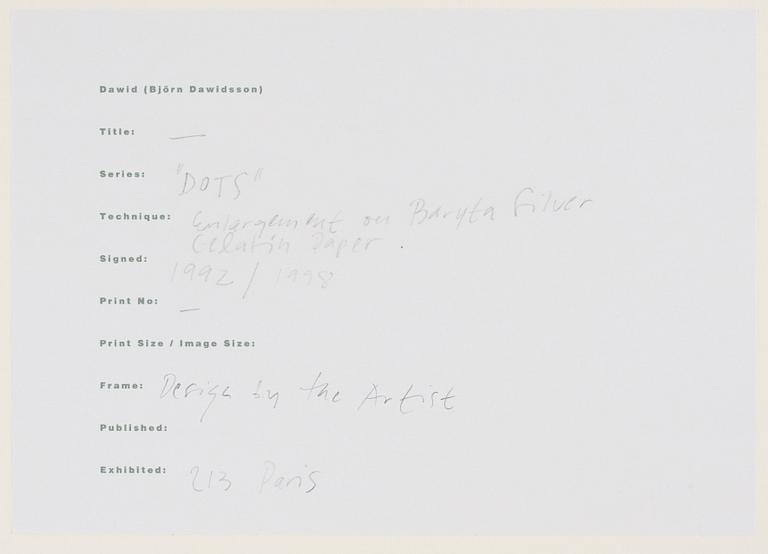 Dawid (Björn Dawidsson)
Title: —
Series: "DOTS"
Technique: Enlargement on Baryta Silver
Gelatin Paper.
Signed: 1992 / 1998
Print No: —
Print Size / Image Size:
Frame: Design by the Artist
Published:
Exhibited: 213 Paris